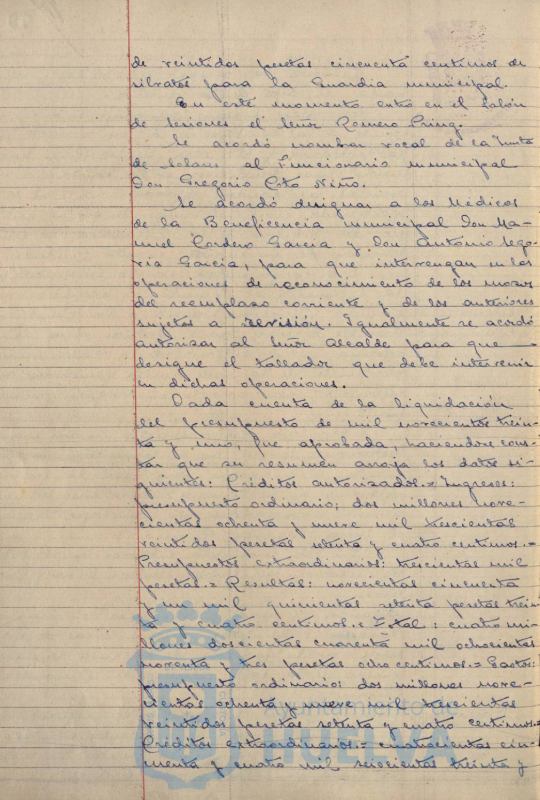 de veintidos pesetas cincuenta centimos de
silvatos para la Guardia municipal.
En este momento entró en el Salón
de Sesiones el Señor Romero Prinz.
Se acordó nombrar vocal de la Junta
de Solares al Funcionario municipal
Don Gregorio Coto Niño.
Se acordó designar a los Médicos
de la Beneficencia municipal Don Ma-
nuel Cordero Garcia y Don Antonio Sego-
via Garcia, para que intervengan en las
operaciones de reconocimiento de los mozos
del reemplazo corriente y de los anteriores
sujetos a revisión. Igualmente se acordó
autorizar al Señor Alcalde para que
designe el tallador que debe intervenir
en dichas operaciones.
Dada cuenta de la liquidación
del presupuesto de mil novecientos trein-
ta y uno, fue aprobada, haciendose cons-
tar que su resumen arroja los datos si-
guientes: Créditos autorizados.= Ingresos:
presupuesto ordinario; dos millones nove-
cientas ochenta y nueve mil trescientas
veintidos pesetas setenta y cuatro centimos.=
Presupuestos extraordinarios: trescientas mil
pesetas.= Resultas: novecientas cincuenta
y un mil quinientas setenta pesetas trein-
ta y cuatro centimos.= Total: cuatro mi-
llones doscientas cuarenta mil ochocientas
noventa y tres pesetas ocho centimos.= Gastos:
presupuesto ordinario: dos millones nove-
cientas ochenta y nueve mil trescientas
veintidos pesetas setenta y cuatro centimos.=
Créditos extraordinarios.= cuatrocientas cin-
cuenta y cuatro mil seiscientas treinta y
Ayuntamiento de
HUELVA